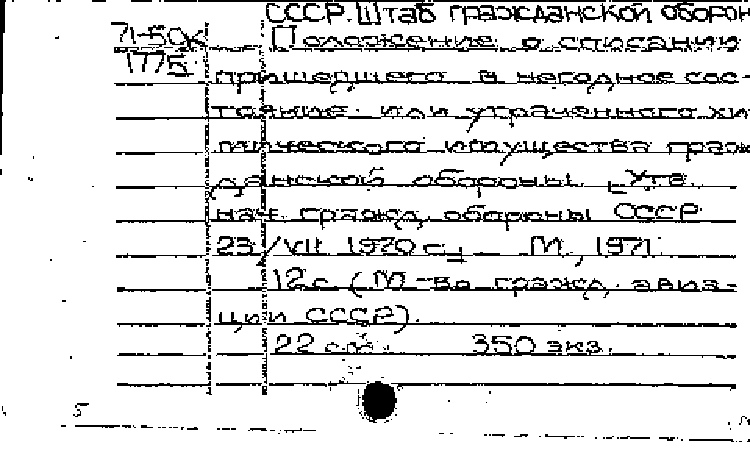 СССР. Штаб гражданской оборон
71-50К Положение о списании
1775
пришедшего в негодное сос-
тояние или утраченного хи-
мического имущества граж
данской обороны. [Утв.
нач. гражд. обороны СССР
23/VII 1970 г.] М., 1971.
12 с (М-во гражд. авиа-
ции СССР).
22 см. 350 экз.
5